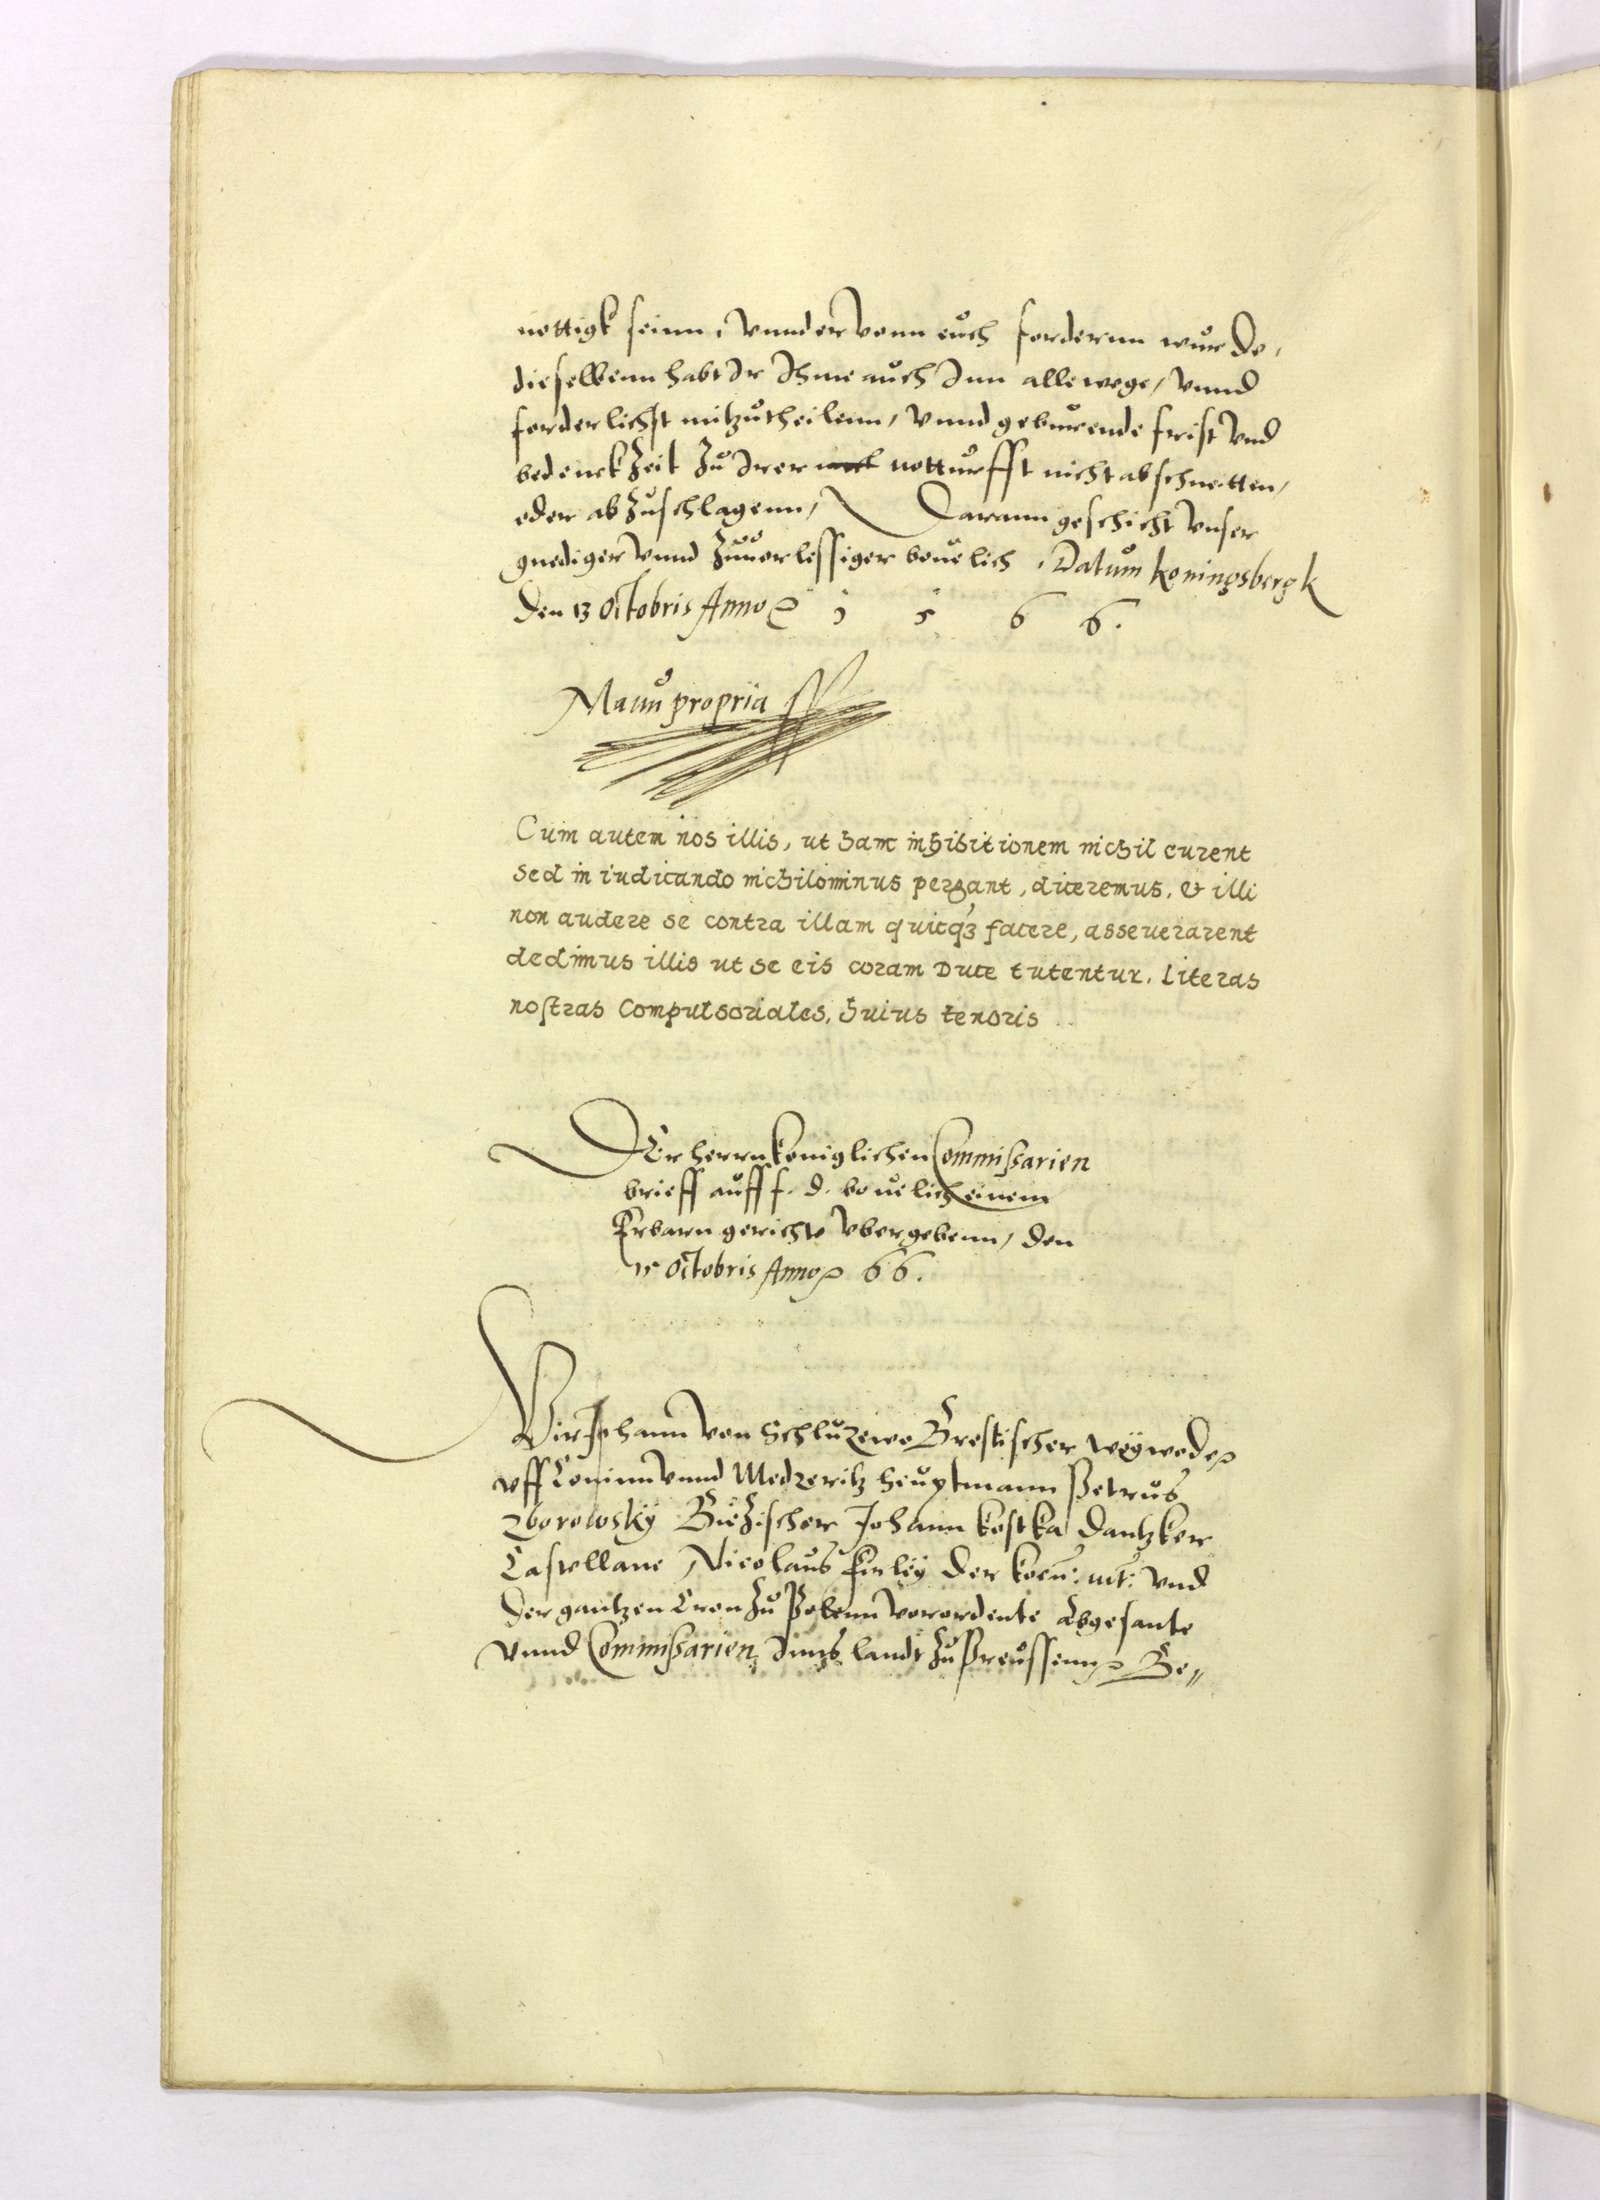 nottigk seinn, vnnd er vonn euch forderun wurde,
dieselbenn habt Ir Ihme auch Inn allewege, vnnd
forderlichst mitzutheilenn, vnnd geburende frist vnd
bedenckzeit zu Irer notturfft nicht abschneitten,
oder abzuschlagenn, Darann geschicht vnser
gnediger vnnd zuuorlessiger beuelich, Datum koningsbergk
den 13 Octobris Anno 1 5 6 6.
Manu propria
Cum autem nos illis, ut hanc inhibitionem nichil curent
sed in iudicando nichilominus pergant, diceremus, & illi
non audere se contra illam quicqz facere, asseuerarent
dedimus illis ut se eis coram Duce tutentur. Literas
nostras Compulsoriales, huius tenoris
Der herrn koniglichen Commißarien
brieff auff f. d. beuelich einem
Erbarn gerichte vbergebenn, den
15 Octobris Anno 66.
Wir Johann von Schluzewo Brestischer weywode
vff Coninn vnnd Medzeritz heuptmann Petrus
Zborowsky Biezischer Johann kostka dantzker
Castellane Nicolaus Firley der koen: mt: vnd
der gantzen Cron zu Polenn vorordente Abgesante
vnnd Commißarien Inns landt zu Preussenn Be„